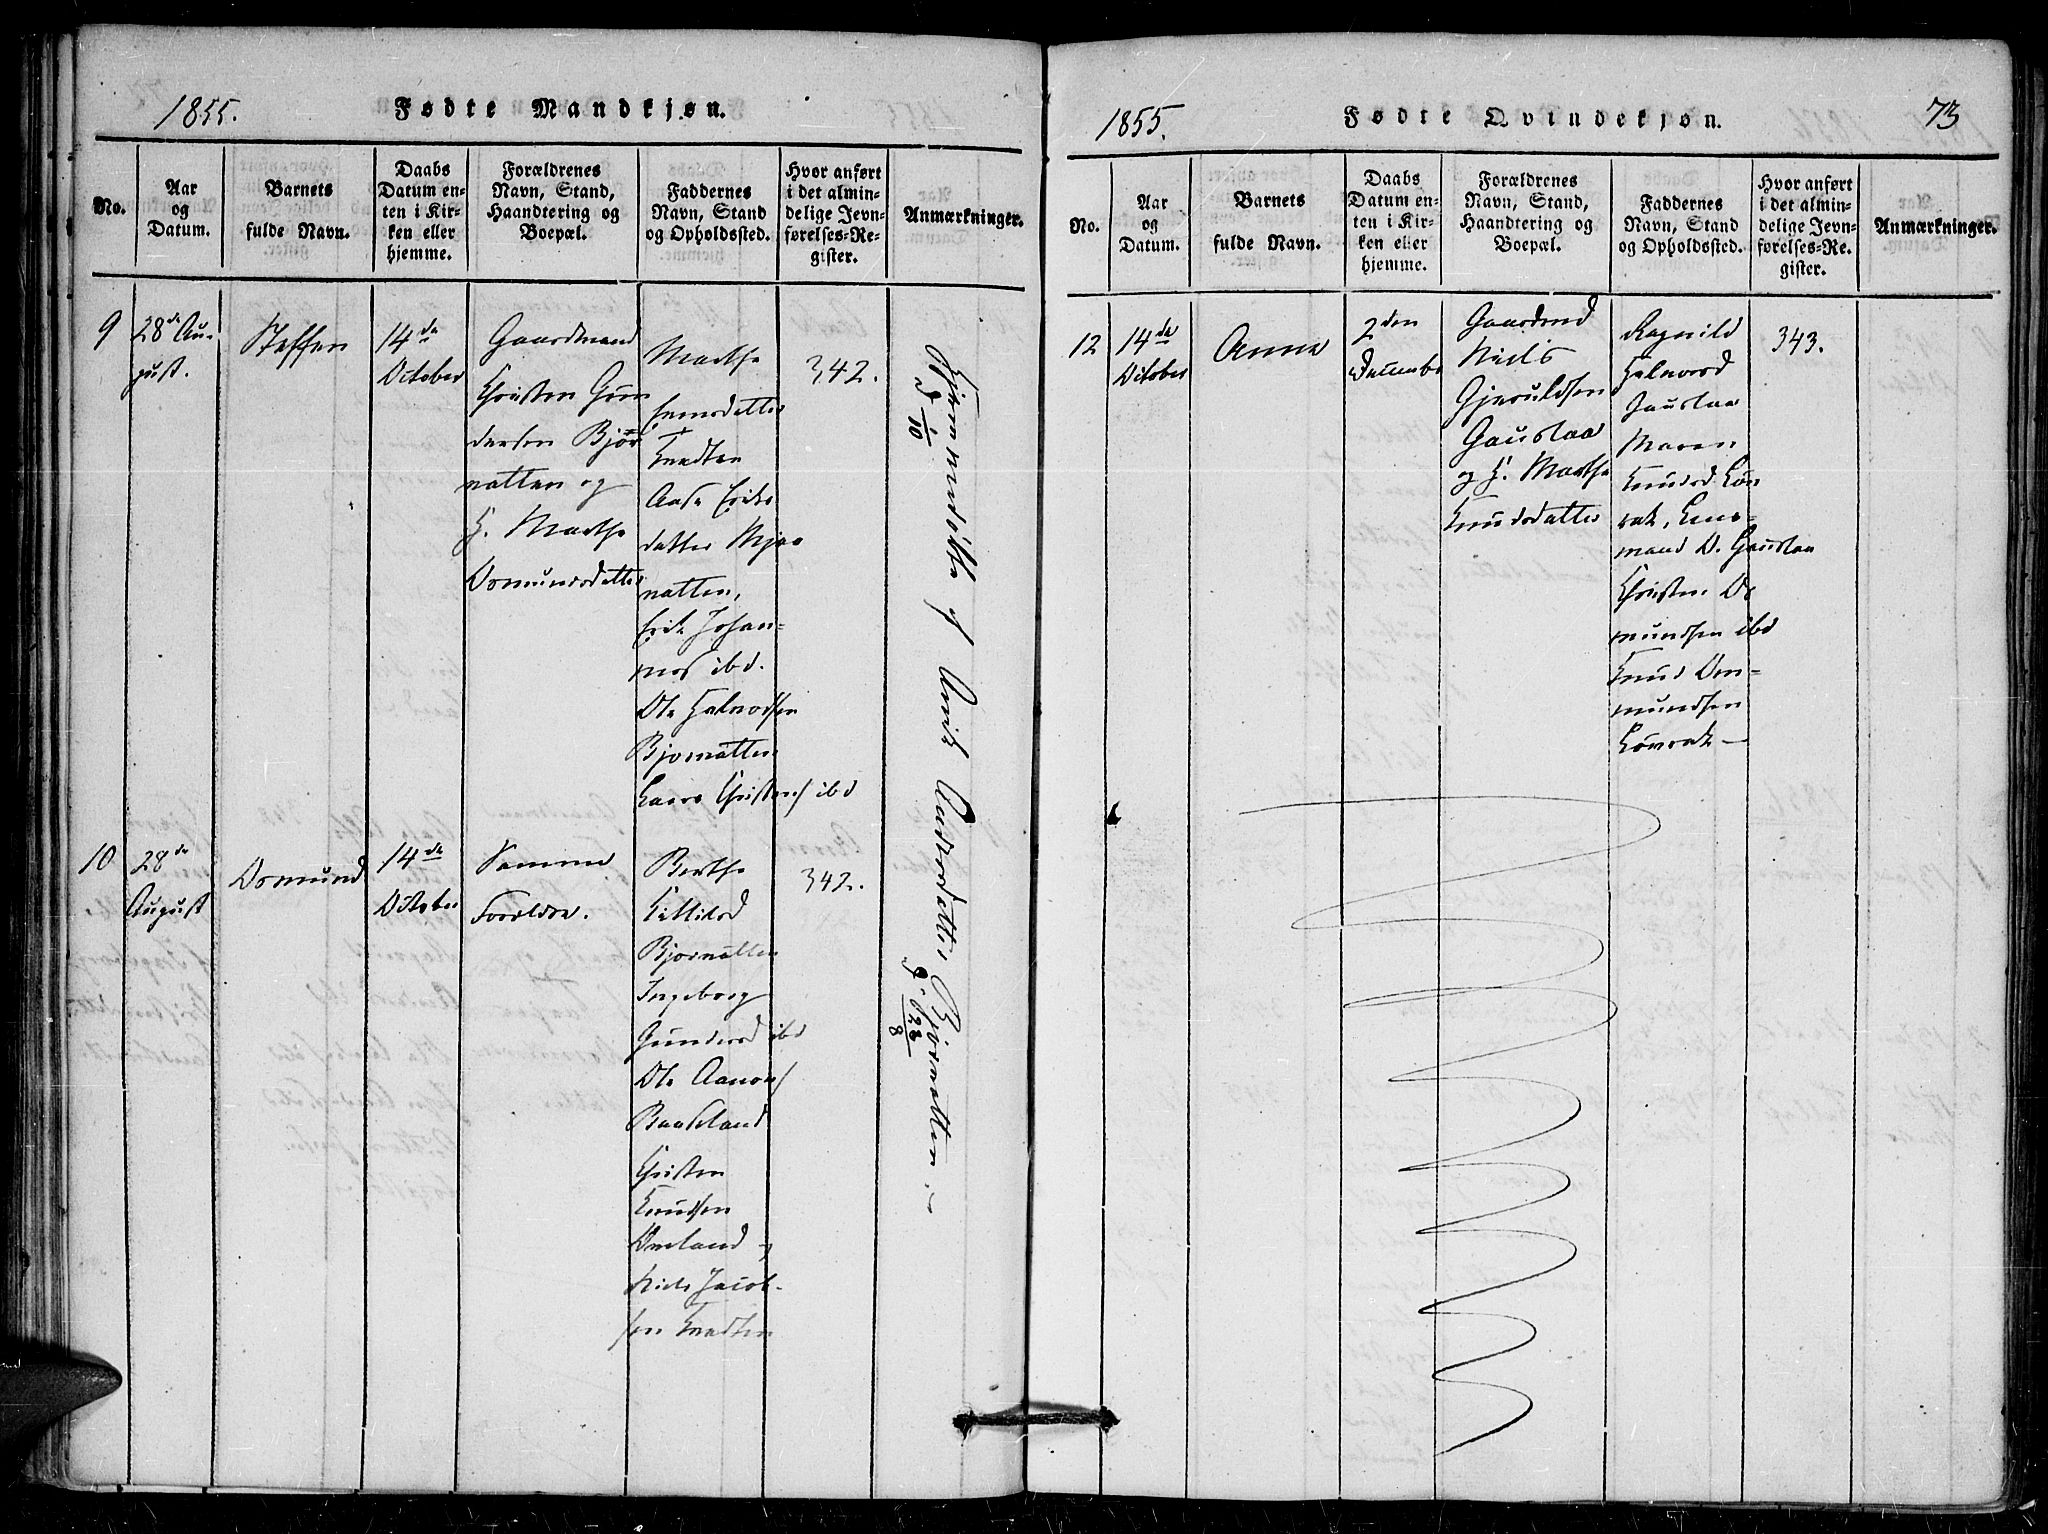 1855.
Fødte Mandkjøn.
No.
Aar
og
Datum.
Barnets
fulde Navn.
Daabs
Datum en-
ten i Kir-
ken eller
hjemme.
Forældrenes
Navn, Stand,
Haandtering og
Boepæl.
Faddernes
Navn, Stand
og Opholdssted.
Hvor anført
i det almin-
delige Jevn-
førelses-Re-
gister.
Anmærkninger.
9
28de Au-
gust.
Steffen
14de
October
Gaardmand
Christen Gun
dersen Bjør
natten og
H. Marthe
Osmundsdatter
Marthe
datter
Aase Eriks
datter
natten,
Erik Johan-
nes ibd.
Ole Halvorsen
Bjornatten
Laars Christens ibd
342.
Hjemmedøbte af Anik Andersdatter Bjørnatten.
10
28de
August
Osmund
14de
October
Samme
Forældre.
Berthe
Kittilsd
Bjornatten
Ingeborg
Gundersd ibd
Ole Aanons
Baaseland
Christen
Knudsen
Omland
Niels Jacob-
sen
342.
1855.
Fødte Qvindekjøn.
73
No.
Aar
og
Datum.
Barnets
fulde Navn.
Daabs
Datum en-
ten i Kir-
ken eller
hjemme.
Forældrenes
Navn, Stand,
Haandtering og
Boepæl.
Faddernes
Navn, Stand
og Opholdssted.
Hvor anført
i det almin-
delige Jevn-
førelses-Re-
gister.
Anmærkninger.
12
14de
October
Anne
2den
Decembr
Gaardmd
Niels
Gjeruldsen
Gaustaa
og H. Marthe
Knudsdatter
Ragnild
Halvorsd
Gaustaa
Maren
Knudsd.
mand O. Gaustaa
Christen Os
mundsen ibd
Knud Om-
mundsen
343.